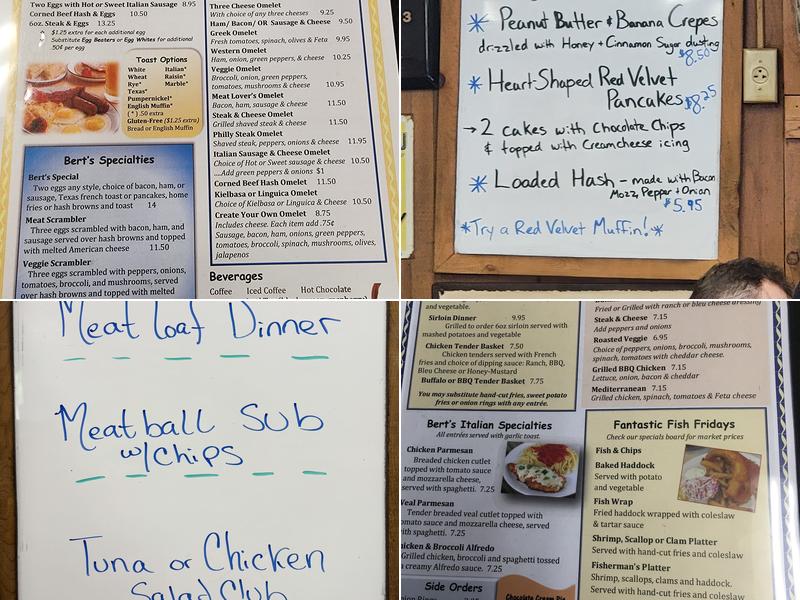 Two Eggs with Hot or Sweet Italian Sausage 8.95
Corned Beef Hash & Eggs 10.50
6oz. Steak & Eggs 13.25
* $1.25 extra for each additional egg
Substitute Egg Beaters or Egg Whites for additional
.50¢ per egg
Toast Options
White Italian*
Wheat Raisin*
Rye* Marble*
Texas*
Pumpernickel*
English Muffin*
(*) .50 extra
Gluten-Free ($1.25 extra)
Bread or English Muffin
Bert's Specialties
Bert's Special
Two eggs any style, choice of bacon, ham, or
sausage, Texas french toast or pancakes, home
fries or hash browns and toast 14
Meat Scrambler
Three eggs scrambled with bacon, ham, and
sausage served over hash browns and topped
with melted American cheese 11.50
Veggie Scrambler
Three eggs scrambled with peppers, onions,
tomatoes, broccoli, and mushrooms, served
over hash browns and topped with melted
Three Cheese Omelet
With choice of any three cheeses 9.25
Ham/ Bacon/ OR Sausage & Cheese 9.50
Greek Omelet
Fresh tomatoes, spinach, olives & Feta 9.95
Western Omelet
Ham, onion, green peppers, & cheese 10.25
Veggie Omelet
Broccoli, onion, green peppers,
tomatoes, mushrooms & cheese 10.95
Meat Lover's Omelet
Bacon, ham, sausage & cheese 11.50
Steak & Cheese Omelet
Grilled shaved steak & cheese 11.50
Philly Steak Omelet
Shaved steak, peppers, onions & cheese 11.95
Italian Sausage & Cheese Omelet
Choice of Hot or Sweet sausage & cheese 10.50
....Add green peppers & onions $1
Corned Beef Hash Omelet 11.50
Kielbasa or Linguica Omelet
Choice of Kielbasa or Linguica & Cheese 10.50
Create Your Own Omelet 8.75
Includes cheese. Each item add .75¢
Sausage, bacon, ham, onions, green peppers,
tomatoes, broccoli, spinach, mushrooms, olives,
jalapenos
Beverages
Coffee Iced Coffee Hot Chocolate
3
* Peanut Butter & Banana Crepes
drizzled with Honey + Cinnamon Sugar dusting
$8.50
* Heart-Shaped Red Velvet
Pancakes $8.25
→ 2 cakes with Chocolate Chips
& topped with Creamcheese icing
* Loaded Hash - made with Bacon
Mozz, Pepper + Onion
$5.95
*Try a Red Velvet Muffin!*
Meat loaf Dinner
Meatball Sub
w/Chips
Tuna or Chicken
Salad Club
and vegetable.
Sirloin Dinner 9.95
Grilled to order 6oz sirloin served with
mashed potatoes and vegetable
Chicken Tender Basket 7.50
Chicken tenders served with French
fries and choice of dipping sauce: Ranch, BBQ,
Bleu Cheese or Honey-Mustard
Buffalo or BBQ Tender Basket 7.75
You may substitute hand-cut fries, sweet potato
fries or onion rings with any entrée.
Bert's Italian Specialties
All entrées served with garlic toast.
Chicken Parmesan
Breaded chicken cutlet
topped with tomato sauce
and mozzarella cheese,
served with spaghetti. 7.25
Veal Parmesan
Tender breaded veal cutlet topped with
tomato sauce and mozzarella cheese, served
with spaghetti. 7.25
Chicken & Broccoli Alfredo
Grilled chicken, broccoli and spaghetti tossed
creamy Alfredo sauce. 7.25
Side Orders
Chocolate Cream Pie
Fried or Grilled with ranch or bleu cheese dressing
Steak & Cheese 7.15
Add peppers and onions
Roasted Veggie 6.95
Choice of peppers, onions, broccoli, mushrooms,
spinach, tomatoes with cheddar cheese.
Grilled BBQ Chicken 7.15
Lettuce, onion, bacon & cheddar
Mediterranean 7.15
Grilled chicken, spinach, tomatoes & Feta cheese
Fantastic Fish Fridays
Check our specials board for market prices
Fish & Chips
Baked Haddock
Served with potato
and vegetable
Fish Wrap
Fried haddock wrapped with coleslaw
& tartar sauce
Shrimp, Scallop or Clam Platter
Served with hand-cut fries and coleslaw
Fisherman's Platter
Shrimp, scallops, clams and haddock.
Served with hand-cut fries and coleslaw